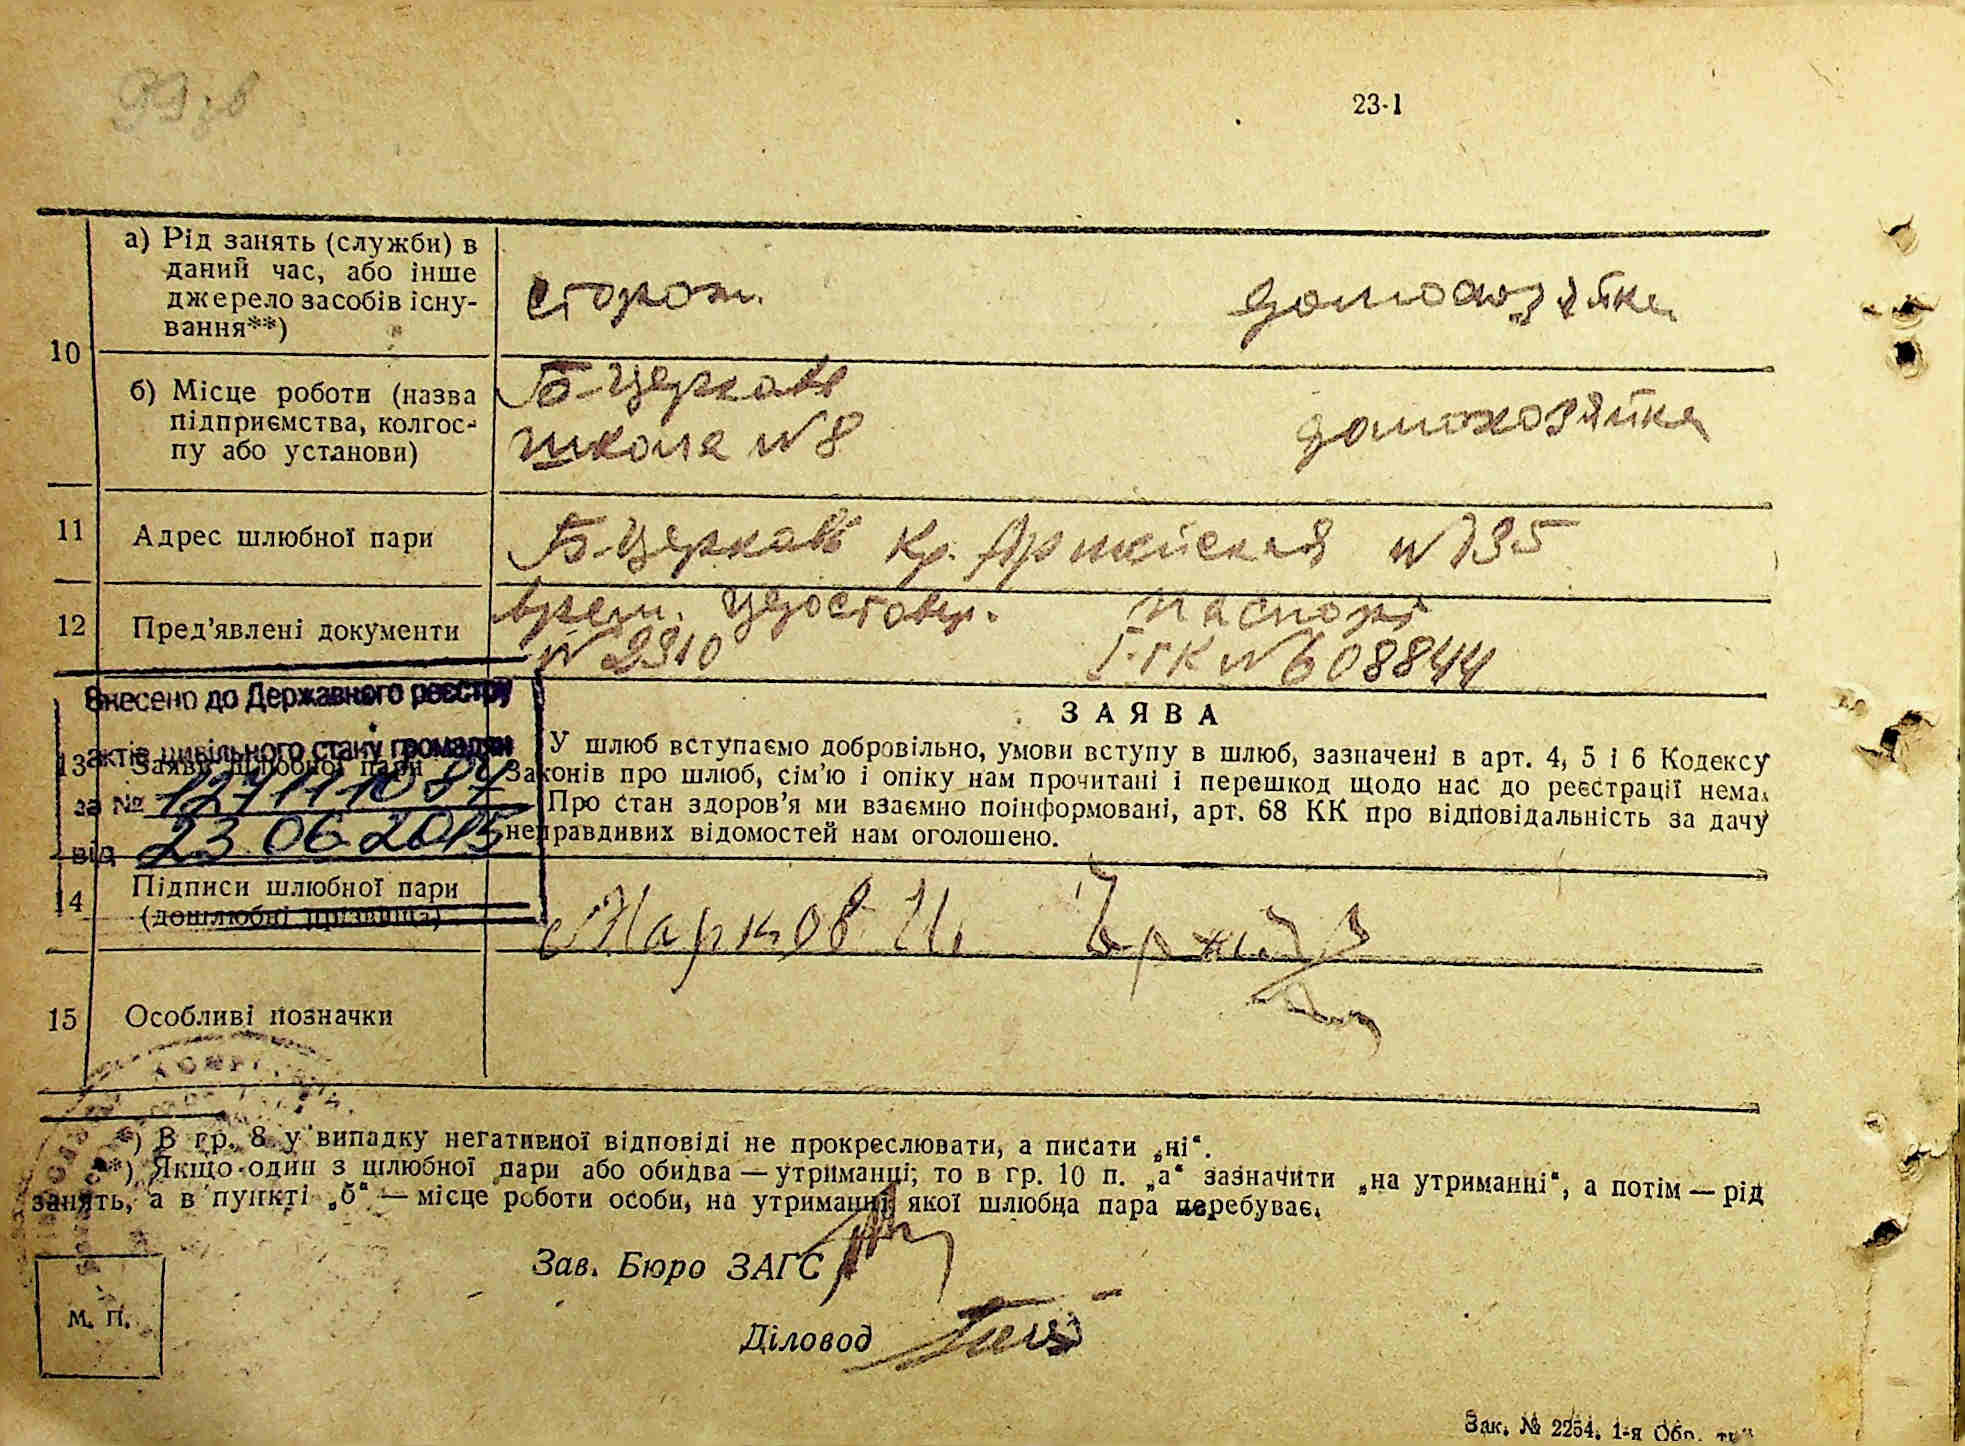 23-1
10
а) Рід занять (служби) в
даний час, або інше
джерело засобів існу-
вання**)
сторож.
домохозяйка
б) Місце роботи (назва
підприємства, колгос-
пу або установи)
Б-Церковь
школа №8
домохозяйка
11
Адрес шлюбної пари
Б-Церковь Кр. Армейская №135
12
Пред'явлені документи
врем. удостовер.
№ 2310
паспорт
№ 608844
Внесено до Державного реєстру
актів цивільного стану громадян
за №
від 23 06 2015
13
Заява шлюбної пари
ЗАЯВА
У шлюб вступаємо добровільно, умови вступу в шлюб, зазначені в арт. 4, 5 і 6 Кодексу
Законів про шлюб, сім'ю і опіку нам прочитані і перешкод щодо нас до реєстрації нема.
Про стан здоров'я ми взаємно поінформовані, арт. 68 КК про відповідальність за дачу
неправдивих відомостей нам оголошено.
14
Підписи шлюбної пари
(дошлюбні прізвища)
Марков И.
15
Особливі позначки
*) В гр. 8 у випадку негативної відповіді не прокреслювати, а писати „ні“.
**) Якщо один з шлюбної пари або обидва — утриманці, то в гр. 10 п. „а“ зазначити „на утриманні“, а потім — рід
занять, а в пункті „б“ — місце роботи особи, на утриманні якої шлюбна пара перебуває.
Зав. Бюро ЗАГС
М. П.
Діловод
Зак. № 2254. 1-я Обр.